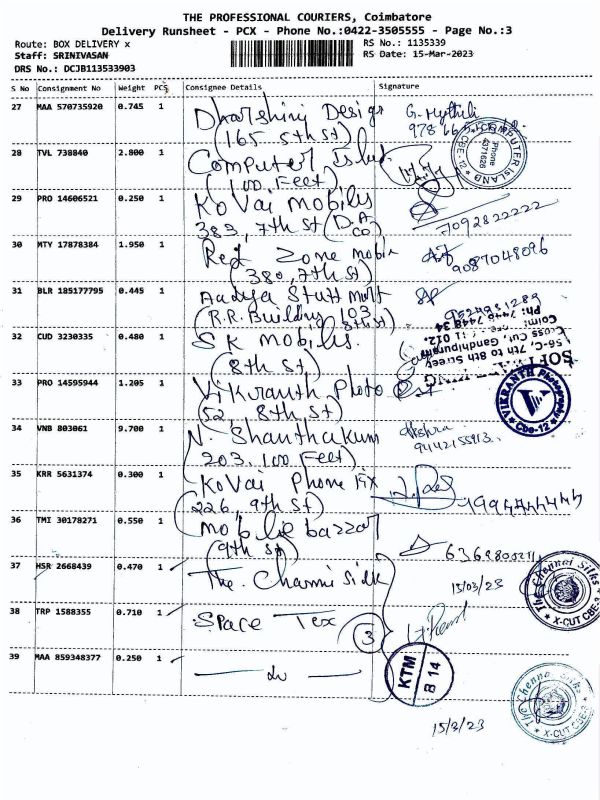 THE PROFESSIONAL COURIERS, Coimbatore
Delivery Runsheet - PCX - Phone No.:0422-3505555 - Page No.:3
Route: BOX DELIVERY x
RS No.: 1135339
Staff: SRINIVASAN
RS Date: 15-Mar-2023
DRS No.: DCJB113533903
S No Consignment No Weight PCS Consignee Details Signature
27 MAA 570735920 0.745 1 Dharshini Design G. Mythili
(165 5th St)
28 TVL 738840 2.800 1 Computer Island
(100 Feet)
COMPUTER ISLAND
Phone
4371626
CBE-12
29 PRO 14606521 0.250 1 KoVai mobiles
383, 7th St (D.A Co) 7092822222
30 MTY 17878384 1.950 1 Red Zone mobile
(380, 7th St) 9087048096
31 BLR 185177795 0.445 1 Aadya Stuff mart
(R.R. Building 103, 8th St) 9524851289
32 CUD 3230335 0.480 1 S K mobiles.
(8th St)
56-C, 7th to 8th Street
Cross Cut Gandhipuram
33 PRO 14595944 1.205 1 Vikranth Photo
(52 8th St)
VIKRANTH Photography
V
Cbe-12
34 VNB 803061 9.700 1 N. Shanthakum
203, 100 Feet) 9442155913
35 KRR 5631374 0.300 1 KoVai Phone Fix
(226, 9th St)
36 TMI 30178271 0.550 1 mobile bazzar
(9th St)
37 HSR 2668439 0.470 1 The. Chennai Silk 15/03/23
The Chennai Silks
X-CUT CBE-3
38 TRP 1588355 0.710 1 Space Tex
3
KTM
B 14
39 MAA 859348377 0.250 1 — do —
The Chennai Silks
X-CUT CBE-3
15/3/23